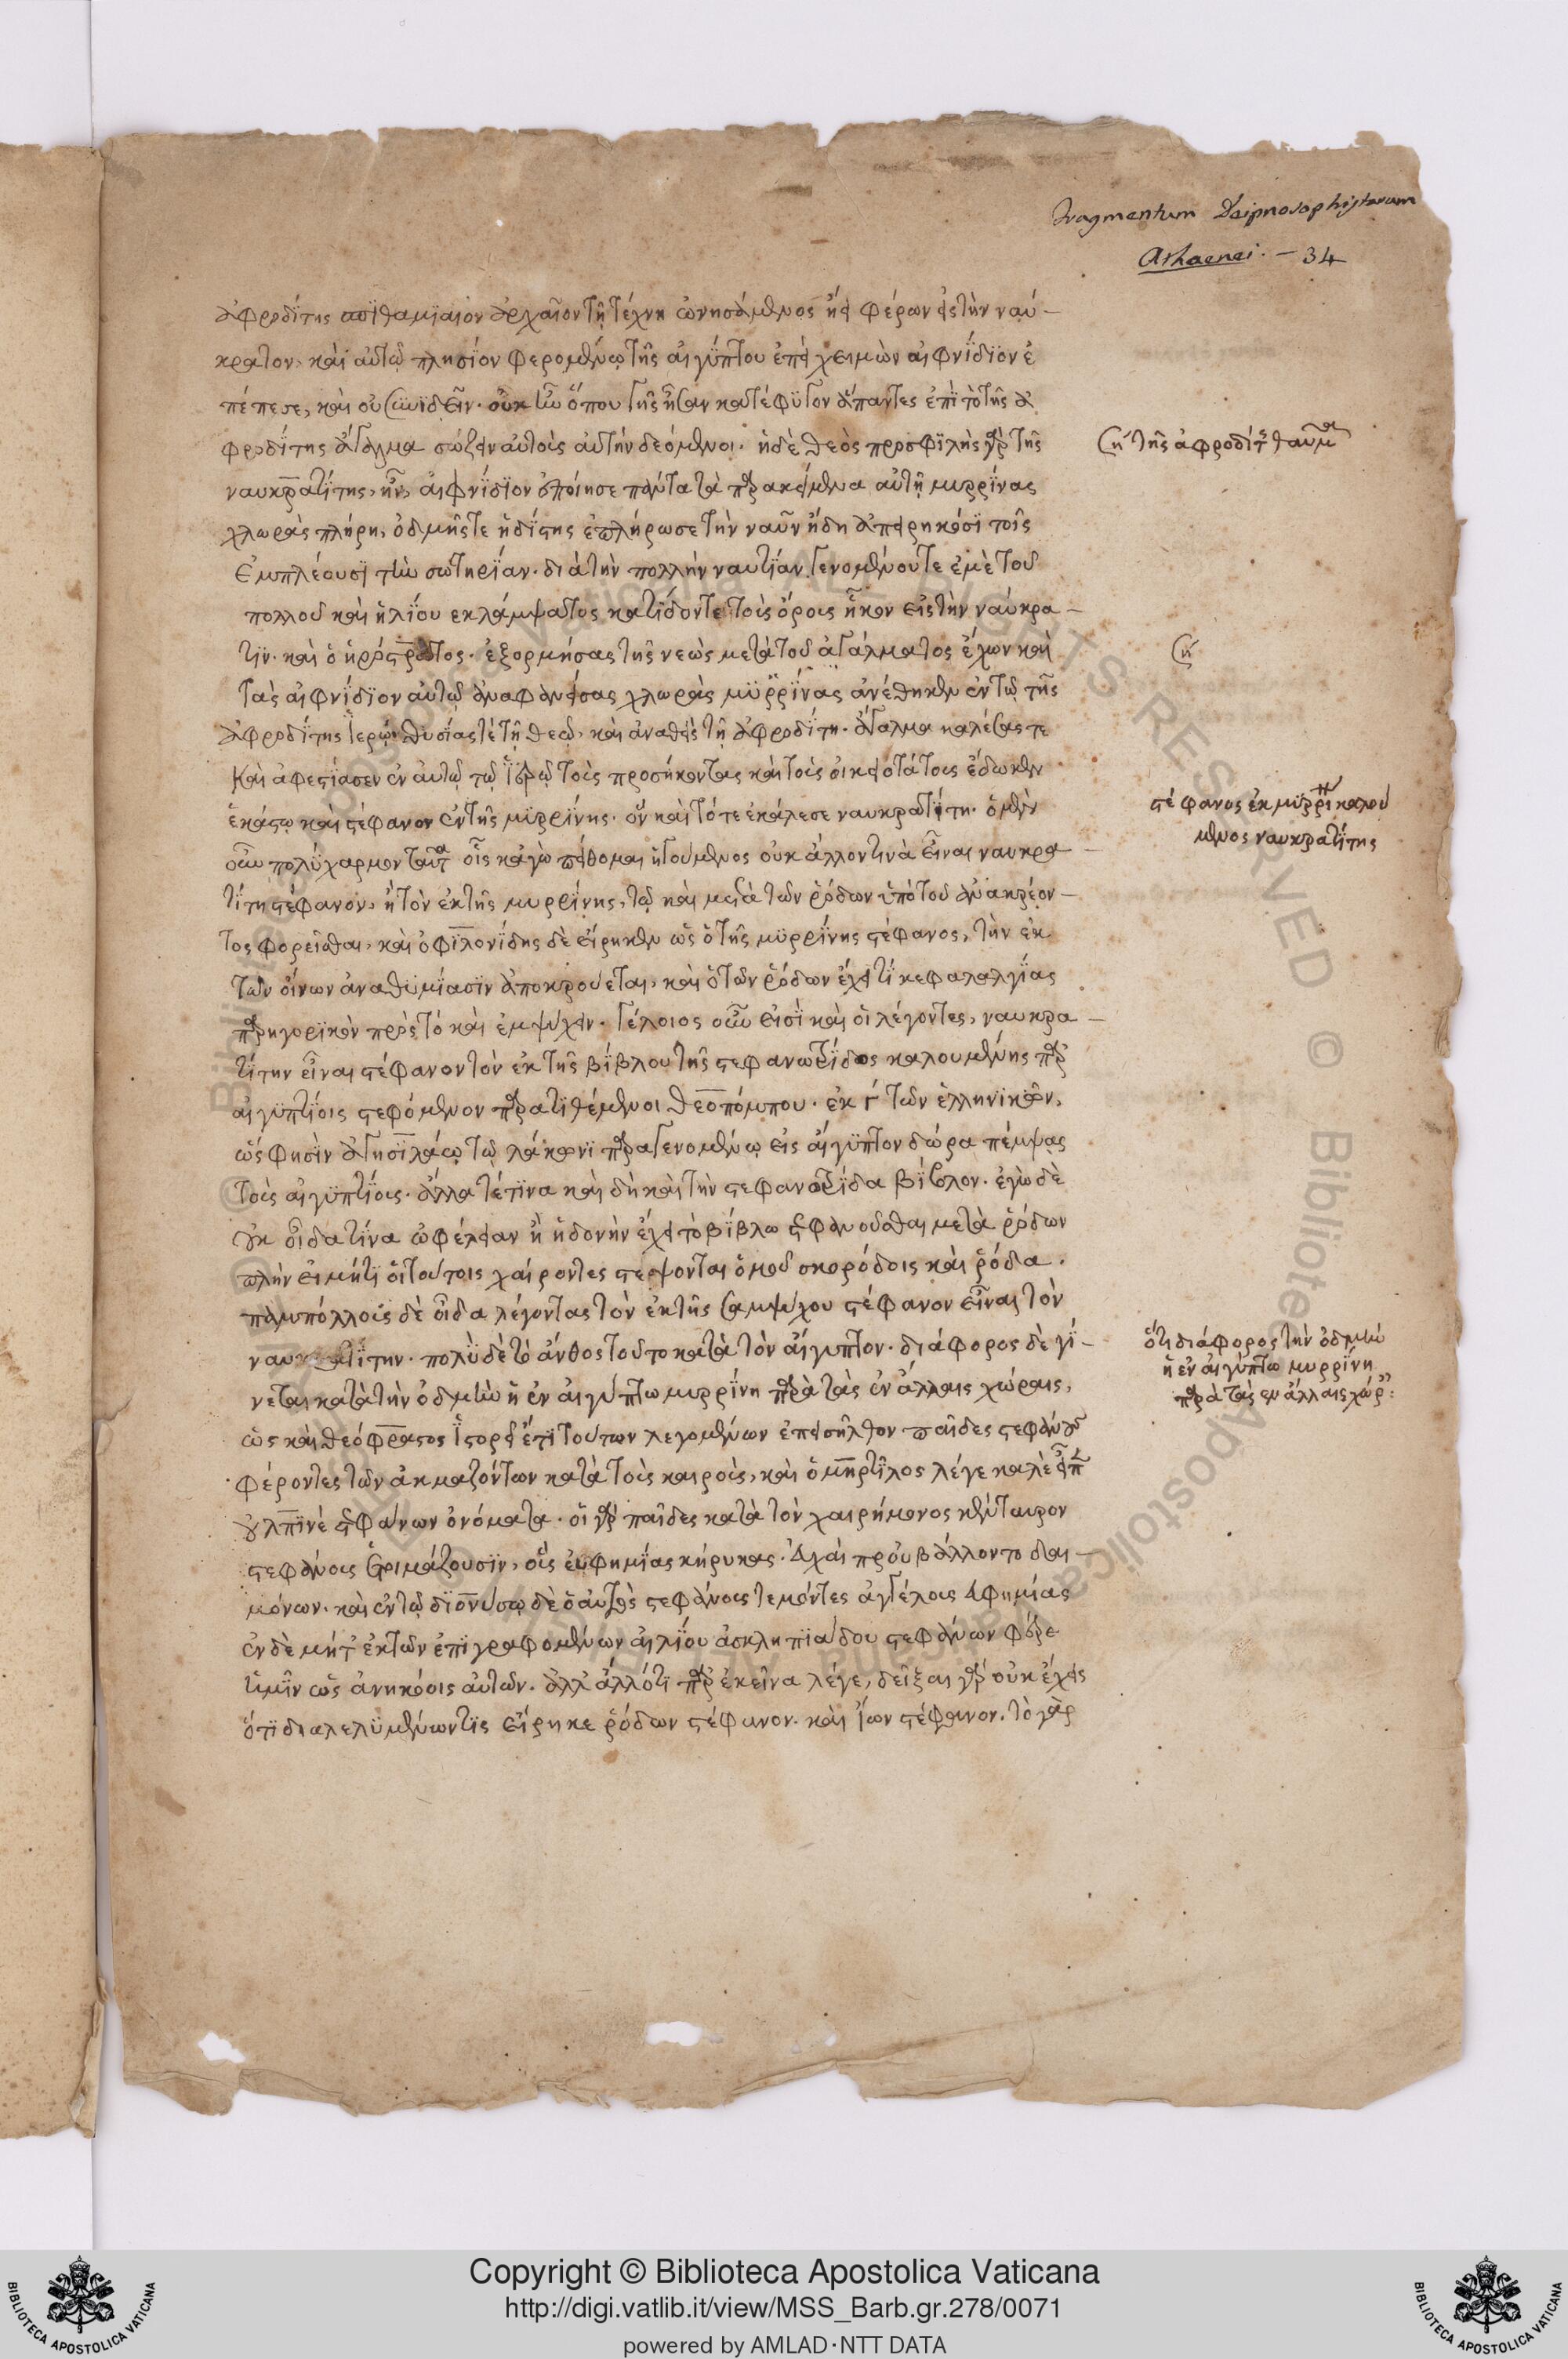 Fragmentum Deipnosophistarum
Athaenei. – 34
ἀφροδίτης σπϊθαμϊαῖον ἀρχαῖον τῆ τέχνη ὠνησάμενος ἤει φέρων εἰς τὴν ναύ-
κρατον, καὶ αὐτῶ πλησίον φερομένω τῆς αἰγύπτου ἐπεὶ χειμὼν αἰφνίδϊον ἐ
πέπεσε, καὶ οὐ συνϊδεῖν. οὐκ ἦν ὅπου γῆς ἦσαν κατέφϋγον ἅπαντες ἐπὶ τὸ τῆς ἀ
φροδίτης ἄγαλμα σώζειν αὐτοὺς αὐτὴν δεόμενοι. ἡ δὲ θεὸς προσφϊλὴς γὰρ τῆς
ναυκρατίτης, ἦν, αἰφνίδϊον ἐποίησε πάντα τὰ παρακείμενα αὐτῆ μυρρίνας
χλωρᾶς πλήρη, ὀδμῆς τε ἡδίστης ἐπλήρωσε τὴν ναῦν ἤδη ἀπειρηκόσϊ τοῖς
ἐμπλέουσϊ τὴν σωτηρίαν. διὰ τὴν πολλὴν ναυτίαν γενομένου τε ἐμὲ τοῦ
πολλοῦ καὶ ἡλίου εκλάμψαντος κατιδόντε τοὺς ὅρους ἧκον εἰς τὴν ναύκρα-
τϊν. καὶ ὁ ἡρόστρατος. ἐξορμήσας τῆς νεὼς μετὰ τοῦ ἀγάλματος ἔχων καὶ
τὰς αἰφνίδϊον αὐτῶ ἀναφανείσας χλωρὰς μϋρρϊνας ἀνέθηκεν ἐν τῶ τῆς
ἀφροδίτης ἱερῶ. θυσίας τὲ τῆ θεῶ, καὶ ἀναθεὶς τῆ ἀφροδίτη. ἄγαλμα καλέσας τε
καὶ ἀφεστίασεν ἐν αὐτῶ τῶ ἱερῶ τοὺς προσήκοντας καὶ τοὺς οἰκειοτάτους ἔδωκεν
ἑκάστω καὶ στέφανον ἐν τῆς μϋρρίνης. ὃν καὶ τότε ἐκάλεσε ναυκρατίτη. ὁ μὲν
οὖν πολύχαρμον ταῦτα οἷς κἀγὼ πείθομαι ἡγούμενος οὐκ ἄλλον τινὰ εἶναι ναυκρα-
τίτη στέφανον, ἢ τὸν ἐκ τῆς μυρρίνης, τῶ καὶ μετὰ τῶν ῥόδων ὑπὸ τοῦ ἀνακρέον-
τος φορεῖσθαι, καὶ ὁ φϊλονίδης δὲ εἴρηκεν ὡς ὁ τῆς μϋρρίνης στέφανος, τὴν ἐκ
τῶν οἴνων ἀναθϋμίασϊν ἀποκρούεται, καὶ ὁ τῶν ῥόδων ἔχει τϊ κεφαλαλγίας
παρηγορϊκὸν πρὸς τὸ καὶ ἐμψύχειν. γέλοιος οὖν εἰσὶ καὶ οἱ λέγοντες, ναυκρα-
τίτην εἶναι στέφανον τὸν ἐκ τῆς βίβλου τῆς στεφανωτρίδος καλουμένης παρ
αἰγϋπτίοις στεφόμενον παρατϊθέμενοι θεοπόμπου. ἐκ γ τῶν ἑλληνϊκῶν,
ὥς φησϊν ἀγησϊλάω τῶ λάκωνϊ παραγενομένω εἰς αἴγϋπτον δῶρα πέμψας
τοὺς αἰγϋπτίους. ἄλλα τέ τϊνα καὶ δὴ καὶ τὴν στεφανωτρίδα βίβλον. ἐγὼ δὲ
οὐκ οἶδα τίνα ὠφέλειαν ἢ ἡδονὴν ἔχει τὸ βίβλω στεφανοῦσθαι μετὰ ῥόδων
πλὴν εἰ μήτϊ οἱ τούτοις χαίροντες στέψονται ὁμοῦ σκορόδοις καὶ ῥόδα.
παμπόλλοις δὲ οἶδα λέγοντας τὸν ἐκ τῆς σαμψύχου στέφανον εἶναι τὸν
ναυκρατίτην. πολϋ δὲ τὸ ἄνθος τοῦτο κατὰ τὸν αἴγυπτον. διάφορος δὲ γί-
νεται κατὰ τὴν ὀδμὴν ἡ ἐν αἰγύπτω μυρρίνη παρὰ τὰς ἐν ἄλλαις χώραις,
ὡς καὶ θεόφραστος ἱστορεῖ ἔτϊ τούτων λεγομένων ἐπεισῆλθον παῖδες στεφάνους
φέροντες τῶν ἀκμαζόντων κατὰ τοὺς καιροὺς, καὶ ὁ μηρτῖλος λέγε καλὲ
οὐλπϊνὲ στεφάνων ὀνόματα. οἱ γὰρ παῖδες κατὰ τὸν χαιρήμονος κένταυρον
στεφάνους ἑτοιμάζουσϊν, οὓς εὐφημίας κήρυκας. εὐχαὶ προὐβάλλοντο δαι-
μόνων. καὶ ἐν τῶ δϊονύσω δὲ ὁ αὐτὸς στεφάνους τεμόντες ἀγγέλους εὐφημίας
ἐν δὲ μήτ ἐκ τῶν ἐπϊγραφομένων αἰλίου ἀσκληπϊάδου στεφάνων φέρε
ἡμῖν ὡς ἀνηκόοις αὐτῶν. ἀλλ ἄλλο τϊ παρ ἐκεῖνα λέγε, δεῖξαι γὰρ οὐκ ἔχεις
ὅτϊ διαλελϋμένων τϊς εἴρηκε ῥόδων στέφανον. καὶ ἴων στέφανον. τὸ γὰρ
ση τῆς ἀφροδίτης θαῦμα
ση
στέφανος ἐκ μϋρρίνης καλού
μενος ναυκρατίτης
ὅτι διάφορος τὴν ὀδμὴν
ἡ ἐν αἰγύπτω μυρρίνη
παρὰ τὰς ἐν ἄλλαις χώρ:
Copyright © Biblioteca Apostolica Vaticana
http://digi.vatlib.it/view/MSS_Barb.gr.278/0071
powered by AMLAD·NTT DATA
BIBLIOTECA APOSTOLICA VATICANA
BIBLIOTECA APOSTOLICA VATICANA